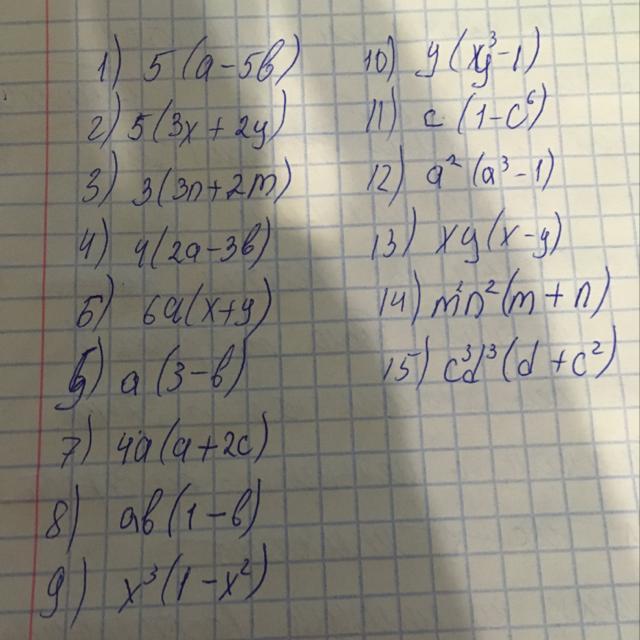 1) 5(a-5b)
2) 5(3x+2y)
3) 3(3n+2m)
4) 4(2a-3b)
5) 6a(x+y)
6) a(3-b)
7) 4a(a+2c)
8) ab(1-b)
9) x³(1-x²)
10) y(xy³-1)
11) c(1-c⁶)
12) a²(a³-1)
13) xy(x-y)
14) m²n²(m+n)
15) c³d³(d+c²)